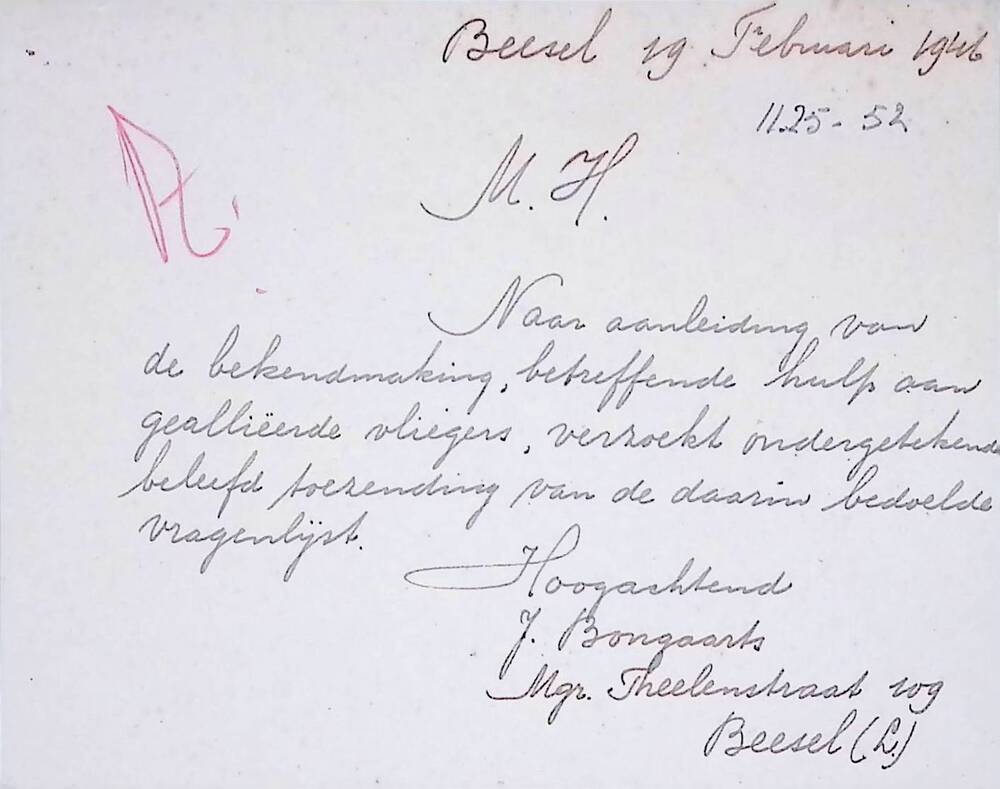 Beesel 19 Februari 1946
1125-52
M. H.
Naar aanleiding van
de bekendmaking, betreffende hulp aan
geallieërde vliegers, verzoekt ondergetekende
beleefd toezending van de daarin bedoelde
vragenlijst.
Hoogachtend
J. Bongaarts
Mgr. Theelenstraat 109
Beesel (L.)